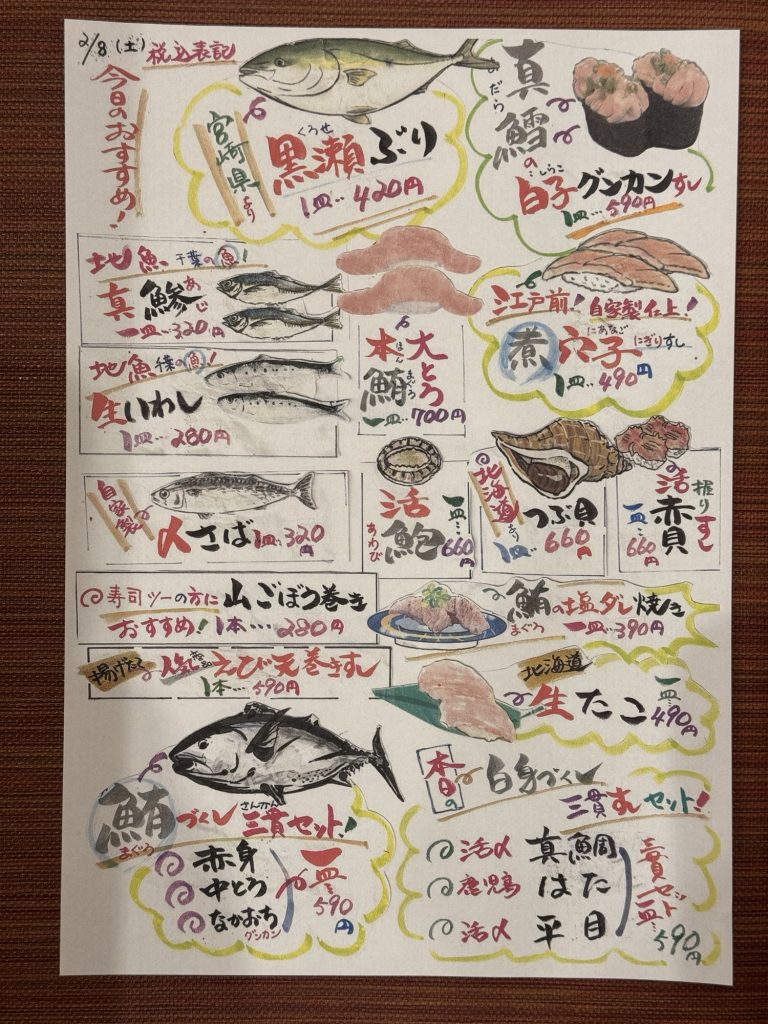 2/8(土)
税込表記
今日のおすすめ!
宮崎県より
くろせ
黒瀬ぶり
1皿…420円
まだら
真鱈の
しらこ
白子グンカンすし
1皿…590円
地魚 千葉の魚!
あじ
真鯵
一皿…320円
地魚 千葉の魚!
生いわし
1皿…280円
大とろ
本鮪
ほん まぐろ
一皿…700円
江戸前! 自家製仕上!
にあなご
煮穴子 にぎりすし
1皿…490円
自家製
〆さば 1皿…320円
活鮑
あわび
一皿…660円
北海道より
つぶ貝
1皿…660円
握りすし
活赤貝
一皿…660円
寿司ツーの方に 山ごぼう巻き
おすすめ! 1本…280円
鮪の塩ダレ焼き
まぐろ
一皿…390円
揚げたて 人気 えび天巻きすし
1本…590円
北海道
生たこ
一皿…490円
鮪づくし
まぐろ
さんかん
三貫セット!
赤身
中とろ
なかおち
グンカン
一皿…590円
本日の
白身づくし
三貫すしセット!
活〆 真鯛
鹿児島 はた
活〆 平目
三貫セット
一皿…590円